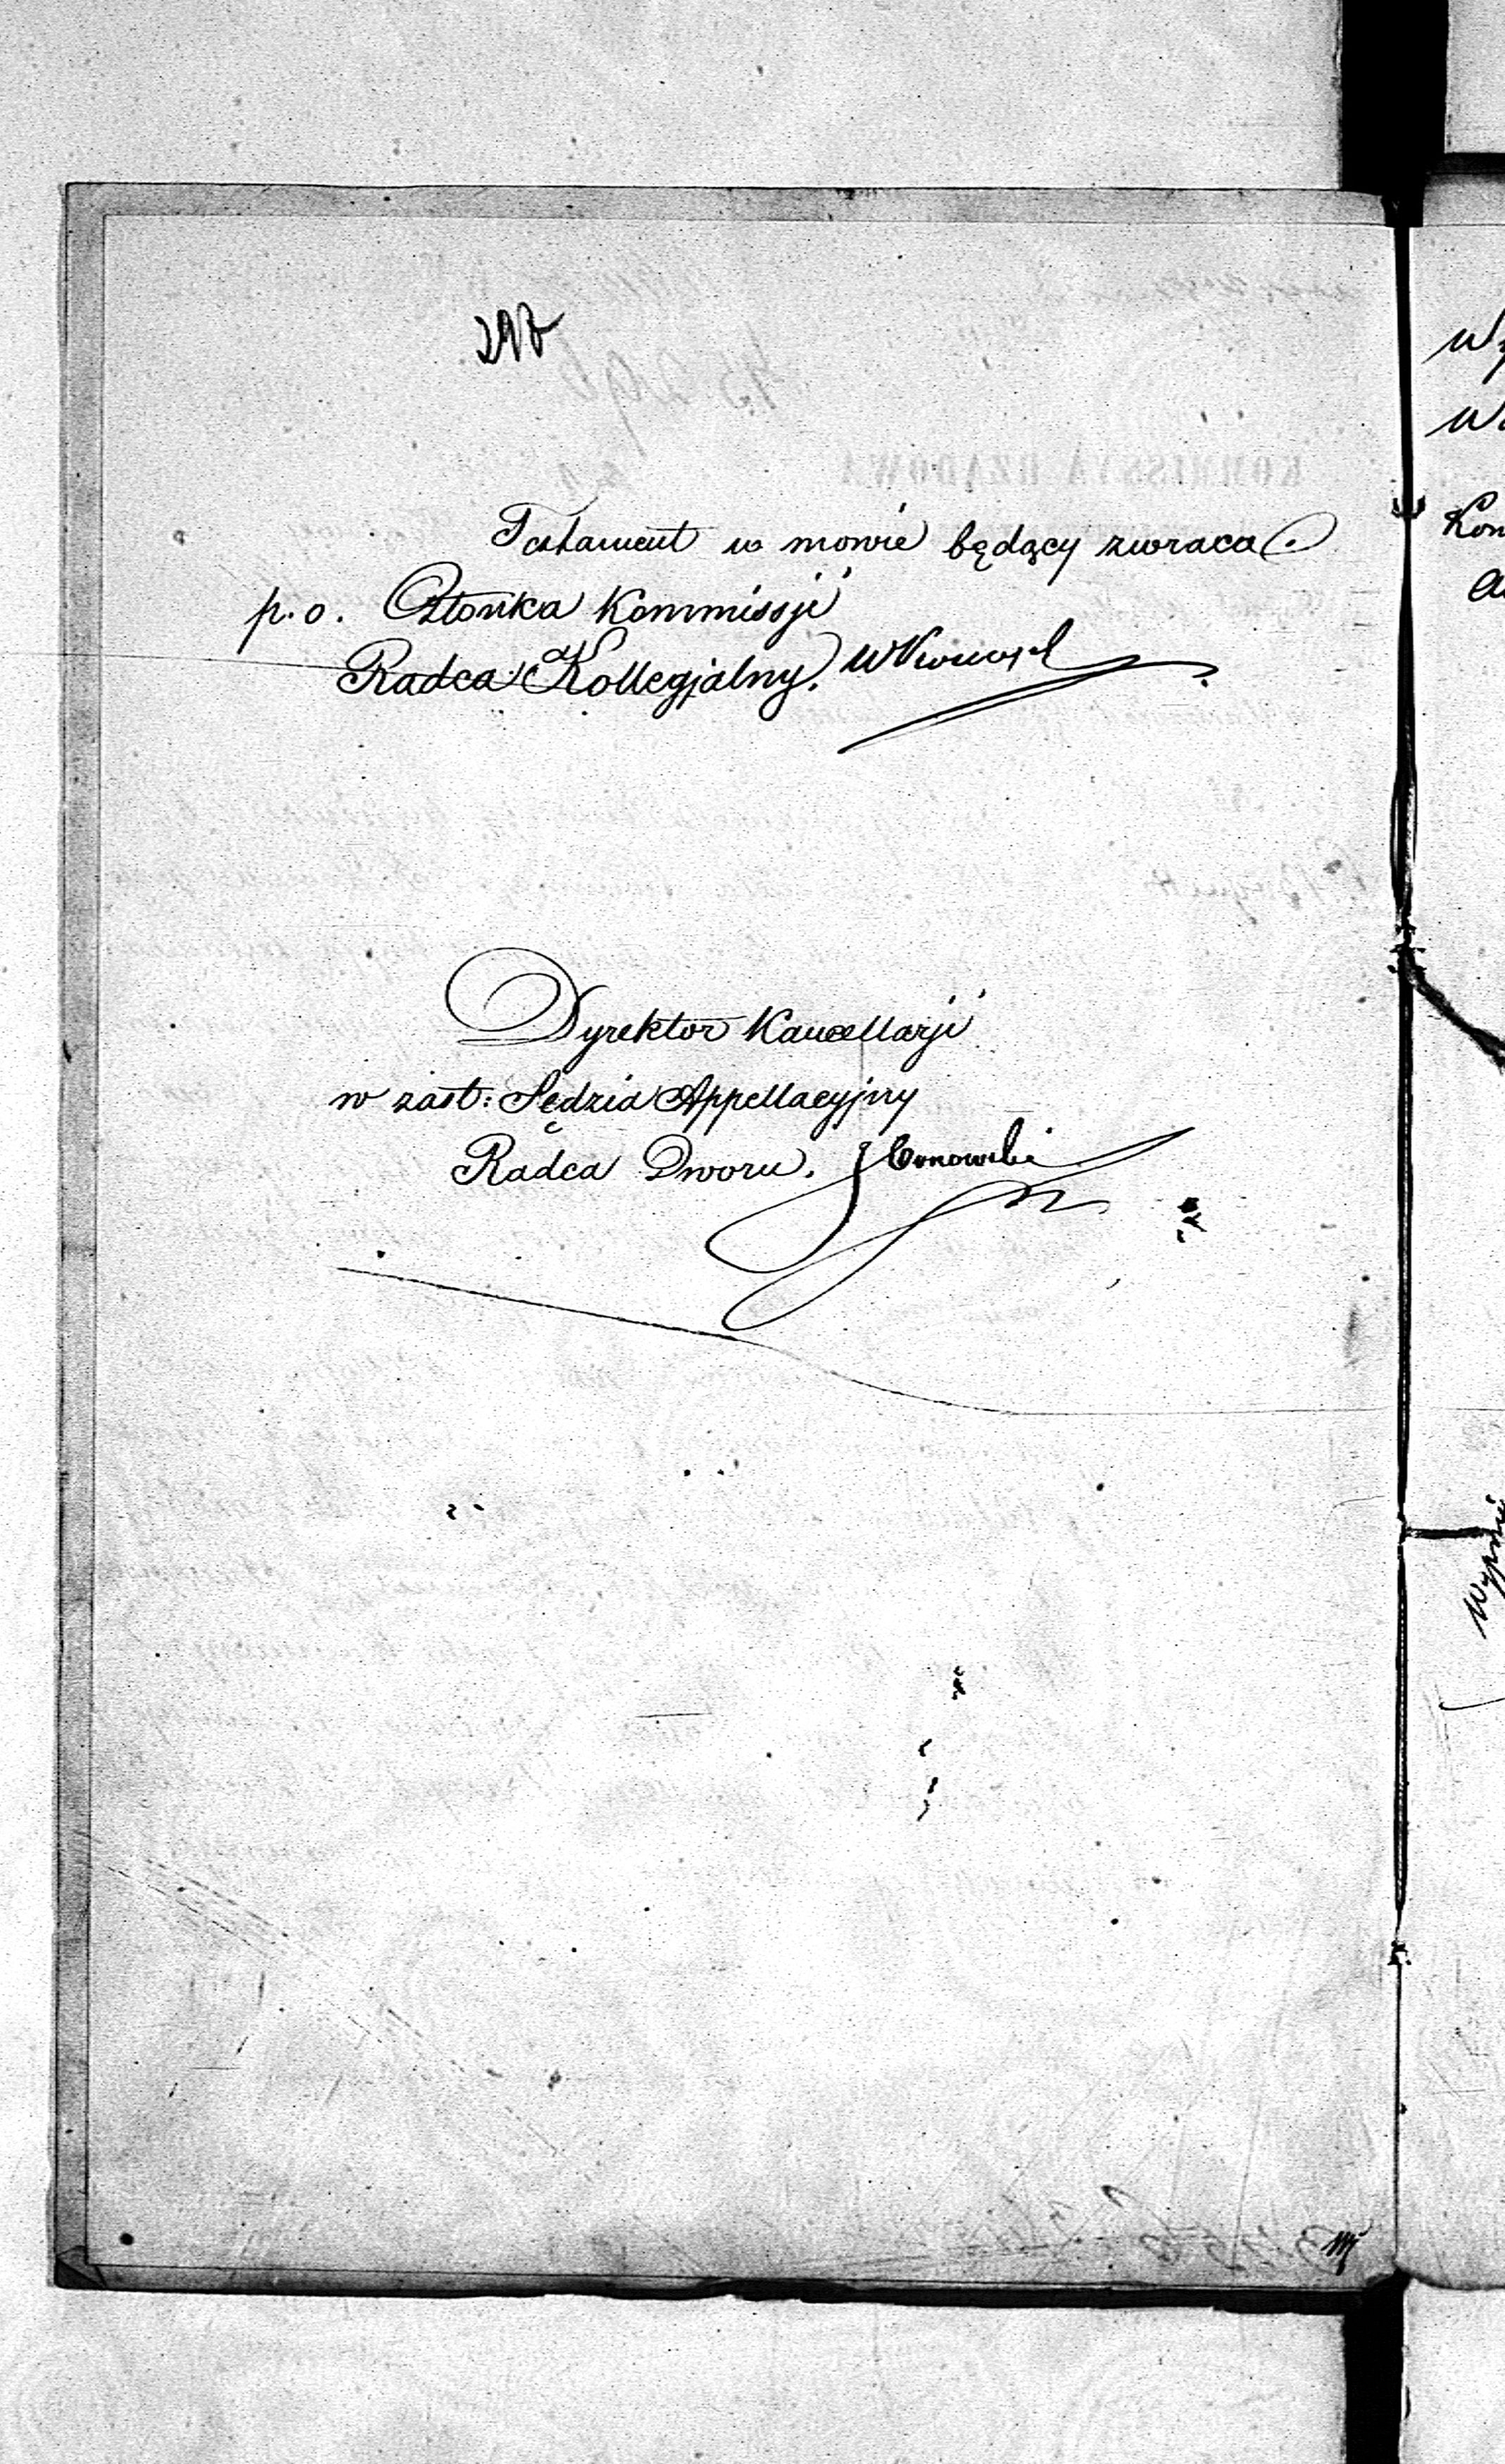 297
Testament w mowie będący zwraca.
p.o. Członka Kommissji
Radca Kollegjalny.
Dyrektor Kancellarji
w zast: Sędzia Appellacyjny
Radca Dworu.
Kom